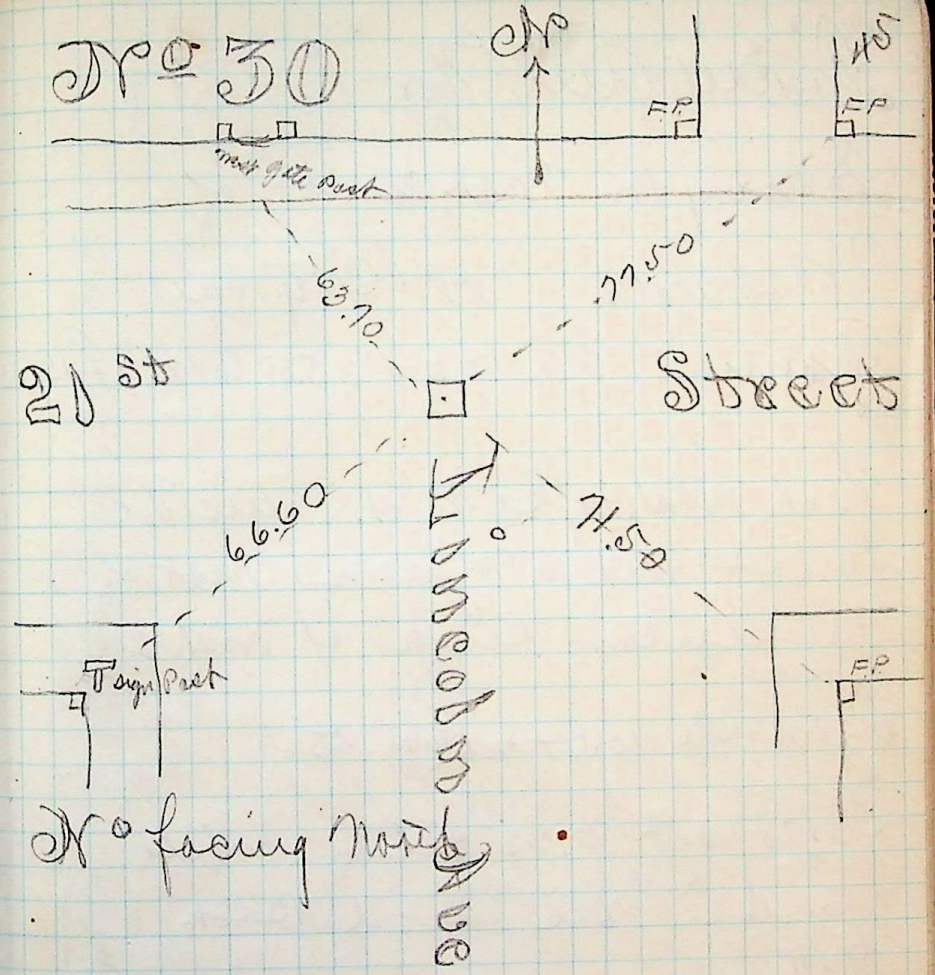 Nº 30
N
45
F.P
F.P
gate Post
63.70
77.50
21 St
Street
66.60
Lincoln Ave
T sign Post
F.P
Nº facing North